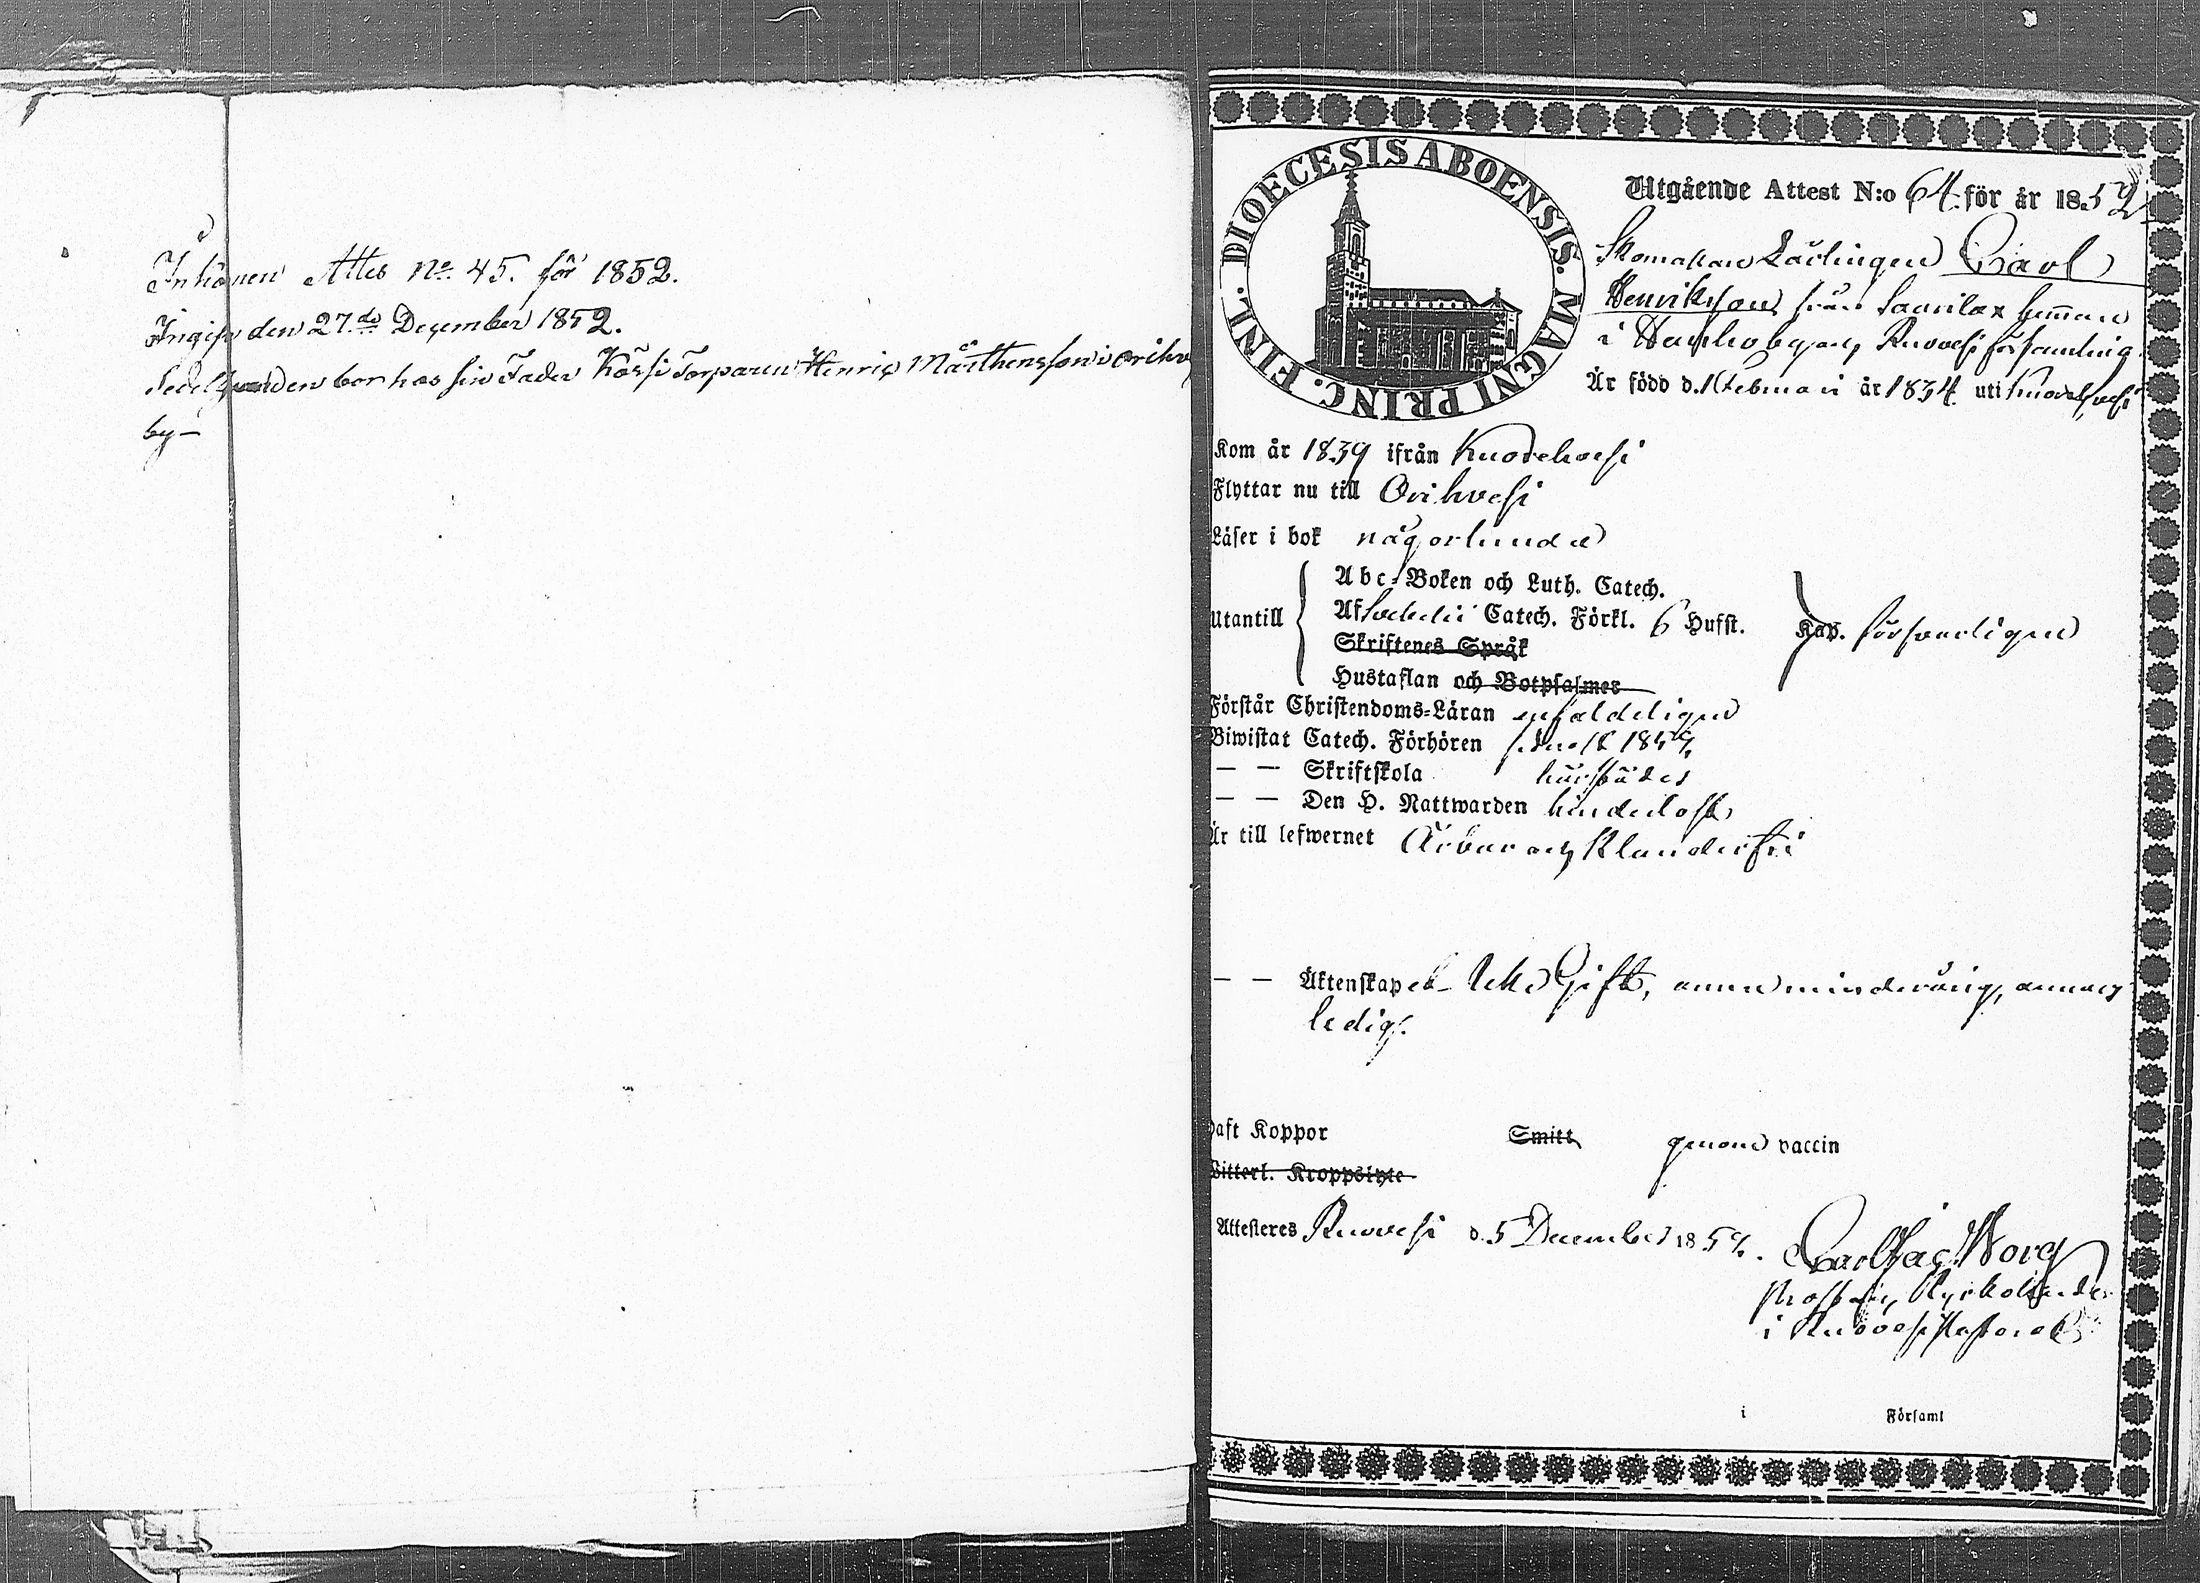 Inkommen Attest No. 45. för 1852.
Ingifv. den 27.de December 1852.
Sedelhafvanden bor hos sin Fader Torparen Henric Mårthensson i Orihvesi
by —
DIOECESIS ABOENSIS. MAGNI PRINC. FINL.
Utgående Attest N:o 64 för år 1852
Skomakare Lärlingen Carl
Henriksson från hemman
i by och Ruovesi församling
Är född d. 1 Februari år 1834 uti Kuorehvesi
Kom år 1839 ifrån Kuorehvesi
Flyttar nu till Orihvesi
Läser i bok någorlunda
Utantill
Abc-Boken och Luth. Catech.
Af Svebelii Catech. Förkl. 6 Hufst. Kap. försvarligen
Skriftenes Språk
Hustaflan och Botpsalmer
Förstår Christendoms-Läran enfaldeligen
Biwistat Catech. Förhören senast 1852
— — Skriftskola härstädes
— — Den H. Nattwarden hinderlöst
Är till lefwernet Ärbar och Klanderfri
— — Äktenskapet Icke Gift, ännu minderårig, annars
ledig.
Haft Koppor Smitt genom vaccin
Witterl. Kroppslyte
Attesteres Ruovesi d. 5 December 1852.
Carl Jac. Borg
Prost och Kyrkoherde
i Ruovesi Pastorat
i Församl